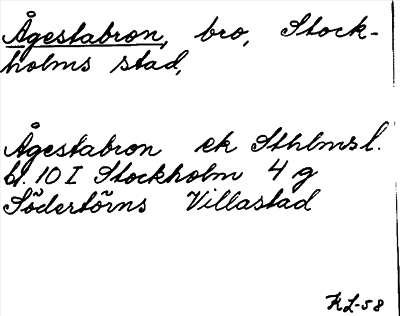 Ågestabron, bro, Stock-
holms stad,
Ågestabron ek Sthlmsl.
bl. 10 I Stockholm 4 g
Södertörns Villastad
KL-58